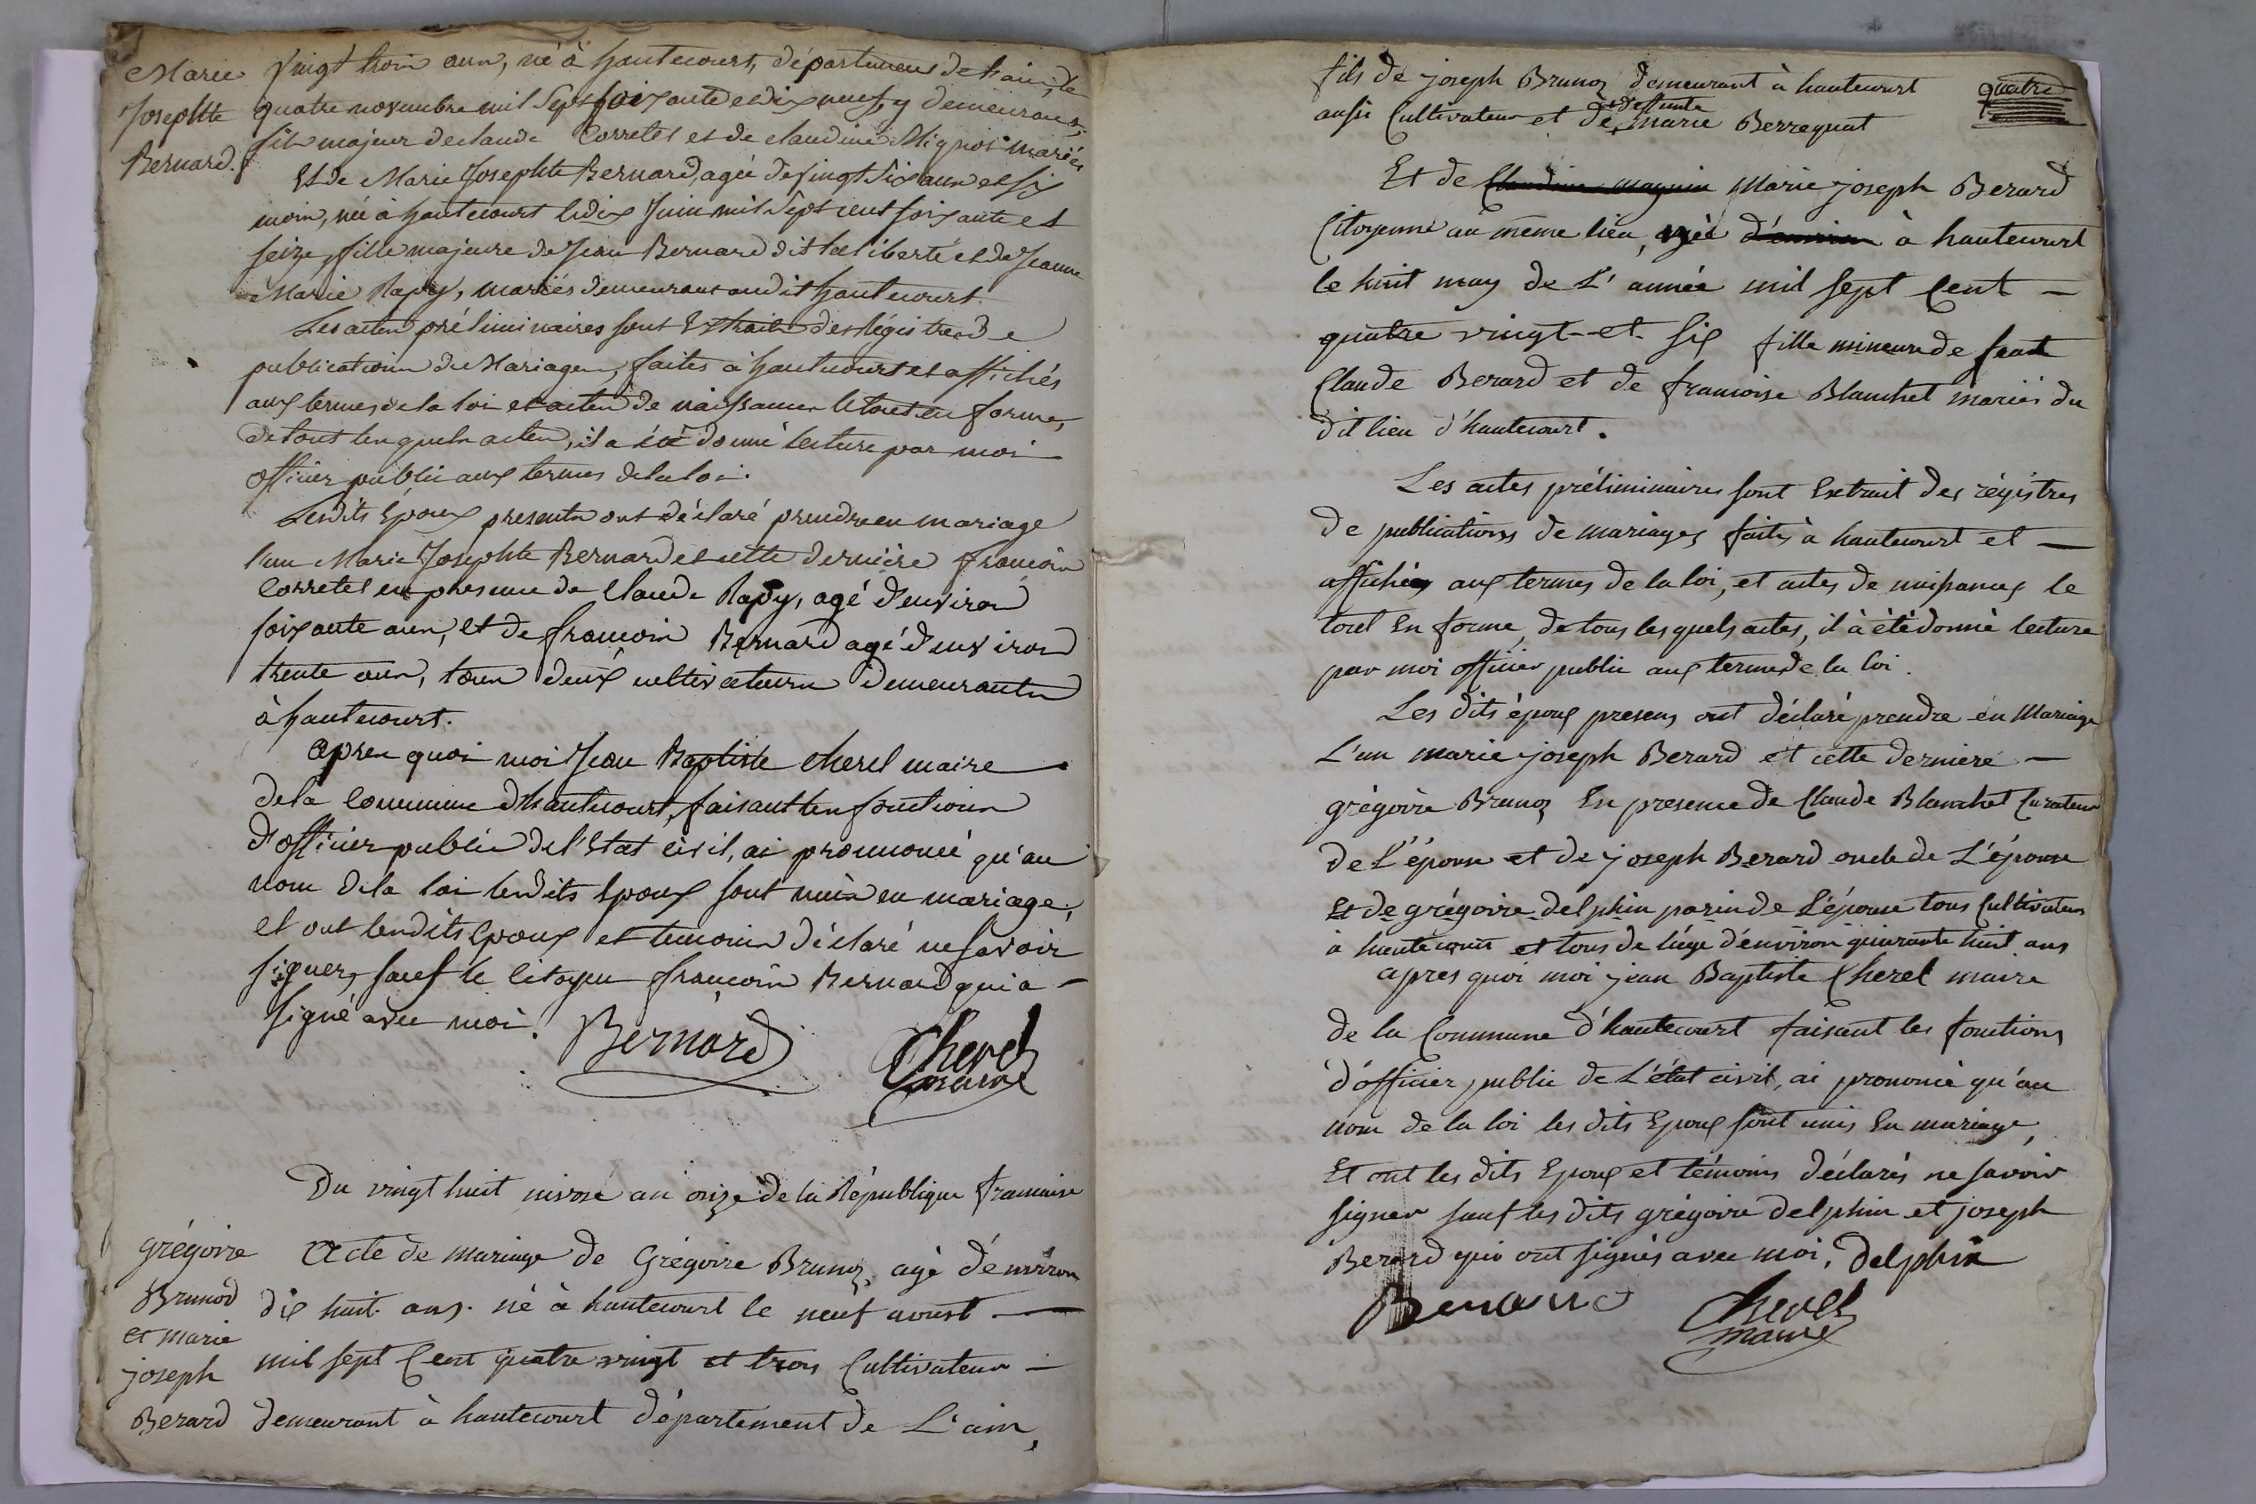 Marie
Josephte
Bernard.
vingt trois ans, né à hautecourt, département de l'ain, le
quatre novembre mil sept soixante et dix neuf, y demeurant,
fils majeur de claude Corretel et de claudine Mignot mariés
Et de Marie Josephte Bernard, agée de vingt six ans et six
mois, née à hautecourt le dix Juin mil sept cent soixante et
seize, fille majeure de Jean Bernard dit la liberté et de Jeanne
Marie Rapy, mariés demeurant audit hautecourt.
Les actes préliminaires sont Extraits des régistres de
publications de Mariages, faites à hautecourt et affichés
aux termes de la loi et actes de naissances le tout en forme,
de tous lesquels actes, il a été donné lecture par moi
officier public aux termes de la loi.
Lesdits Epoux presents ont déclaré prendre en mariage
l'un Marie Josephte Bernard et cette dernière françois
Corretel en presence de Claude Rapy, agé d'environ
soixante ans, et de françois Bernard agé d'environ
trente ans, tous deux cultivateurs demeurants
à hautecourt.
Apres quoi moi Jean Baptiste Cherel maire
de la Commune d'hautecourt, faisant les fonctions
d'officier public de l'Etat civil, ai prononcé qu'au
nom de la loi lesdits Epoux sont unis en mariage;
et ont lesdits Epoux et temoins déclaré ne savoir
signer, sauf le Citoyen françois Bernard qui a
signé avec moi.
Bernard Cherel
maire
Du vingt huit nivose an onze de la République francaise
grégoire
Brunod
et marie
joseph
Berard
Acte de mariage de Grégoire Brunoz, agé d'environ
dix huit ans. né à hautecourt le neuf aoust
mil sept Cent quatre vingt et trois Cultivateur
demeurant à hautecourt département de L'ain,
quatre
fils de joseph Brunoz demeurant à hautecourt
aussi Cultivateur et de deffunte marie Berrequat
Et de Claudine magnin Marie joseph Berard
Citoyenne au même lieu, agée d'environ à hautecourt
le huit may de L'année mil sept Cent
quatre vingt et six fille mineure de feux
Claude Berard et de francoise Blanchet mariés du
dit lieu d'hautecourt.
Les actes préliminaires sont Extrait des régistres
de publications de mariages faites à hautecourt et
affichées aux termes de la loi, et actes de naissances le
tout En forme, de tous lesquels actes, il à été donné lecture
par moi officier public aux terme de la loi.
Les dits époux presens ont déclaré prendre en Mariage
L'un marie joseph Berard et cette derniere
grégoire Brunoz En presence de Claude Blanchet Curateur
de L'épouse et de joseph Berard oncle de L'épouse
Et de grégoire delphin parin de L'épouse tous Cultivateurs
à hautecourt et tous de l'age d'environ quarante huit ans
apres quoi moi jean Baptiste Cherel maire
de la Commune d'hautecourt faisant les fonctions
d'officier public de L'état civil, ai prononcé qu'au
nom de la loi les dits Epoux sont unis En mariage,
Et ont les dits Epoux et témoins déclarés ne savoir
signer sauf les dits grégoire delphin et joseph
Berard qui ont signés avec moi. delphin
Berard Cherel
maire